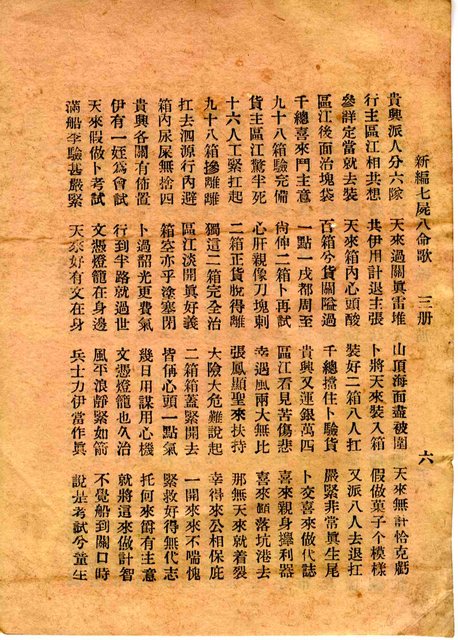 新編七屍八命歌 三册 六
貴興派人分六隊 天來過關眞雷堆 山頂海面盡破圍 天來無計恰克虧
行主區江相共想 共伊用計退主張 卜將天來裝入箱 假做菓子个模樣
參詳定當就去裝 天來箱內心頭酸 裝好二箱八人扛 又派八人去退扛
區江後面治塊袋 百箱兮貨關隘過 千總擋住卜驗貨 嚴緊非常眞生尾
千總喜來鬥主意 一點一戌都周至 貴興又運銀萬四 卜交喜來做代誌
九十八箱驗完備 尙伸二箱卜再試 區江看見苦傷悲 喜來親身攑利器
貨主區江驚半死 心肝親像刀塊刺 幸遇風兩大無比 喜來顧落坑港去
十六人工緊扛起 二箱正貨脫得離 張鳳顯聖來扶持 那無天來就着裂
九十八箱摻離離 獨這二箱完全治 大險大危難說起 幸得來公相保庇
扛去泗源行內避 區江淡開眞好義 二箱箱蓋緊開去 一開來來不喘愧
箱內尿屎無捨四 箱空亦乎塗塞閉 皆稱心頭一點氣 緊救好得無代志
貴興各關有佈置 卜過韶光更費氣 幾日用謀用心機 托何來爵有主意
伊有一姪為會試 行到半路就過世 文憑燈籠也久治 就將這來做計智
天來假做卜考試 文憑燈籠在身邊 風平浪靜緊如箭 不覺船到關口時
滿船李驗甚嚴緊 天來好有文在身 兵士力伊當作眞 說是考試兮童生